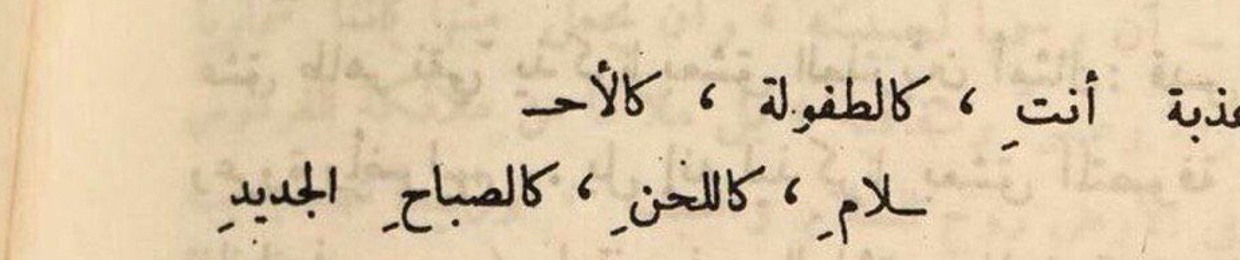 عذبة أنتِ ، كالطفولة ، كالأحـ
ـلامِ ، كاللحنِ ، كالصباحِ الجديدِ